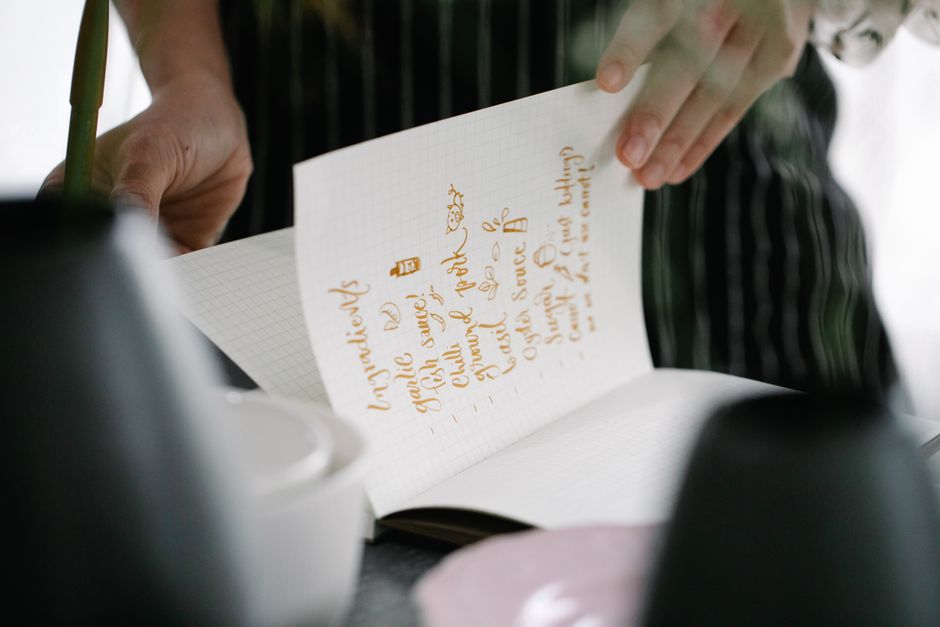 Ingradients
- garlic
- fish sauce!
- chilli
- ground pork
- basil
- oyster sauce
- sugar
- carrot (just kidding
no we don't use carrot!)